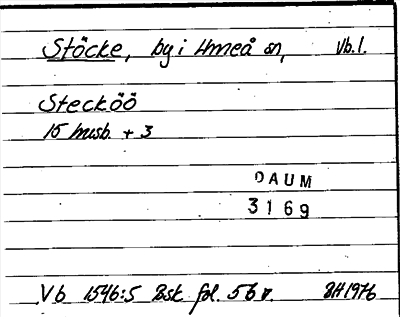 Stöcke, by i Umeå sn, Vb.l.
Stecköö
15 husb. + 3
DAUM
3169
Vb 1546:5 Bsk fol. 56 v. BH1976